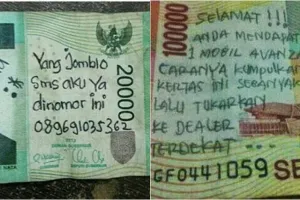 Yang Jomblo
Sms aku Ya
dinomor ini
089691035362
20000
SELAMAT!!!
ANDA MENDAPAT
1 MOBIL AVANZA
CARANYA KUMPULKAN
KERTAS INI SEBANYAK
LALU TUKARKAN
KE DEALER
TERDEKAT
GF0441059
SE